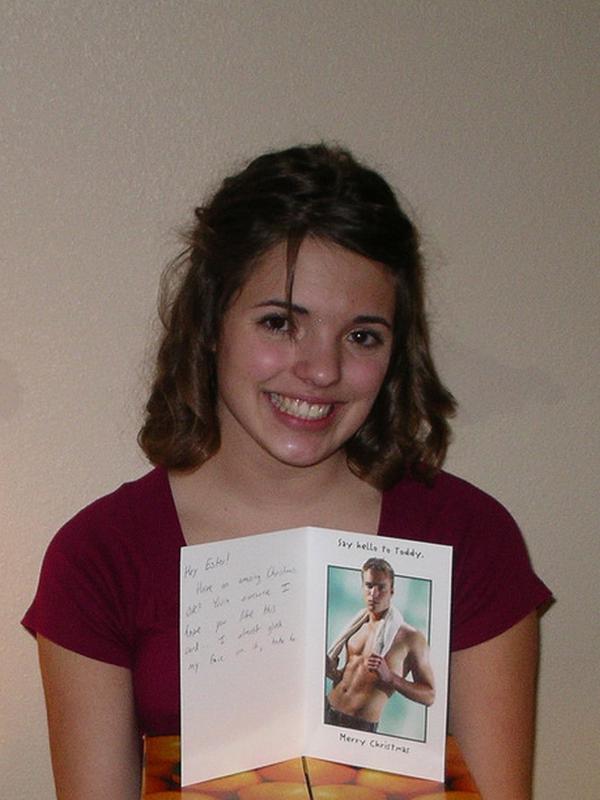 Hey Ester!
Have an amazing Christmas
ok? Your awesome I
hope you like this
card. I almost glued
my face on it, to
Say hello to Toddy.
Merry Christmas